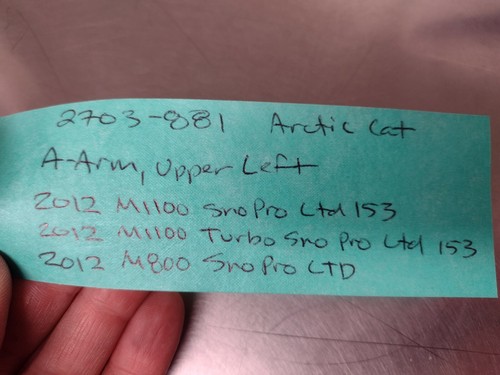 2703-881 Arctic Cat
A-Arm, Upper Left
2012 M1100 Sno Pro Ltd 153
2012 M1100 Turbo Sno Pro Ltd 153
2012 M800 Sno Pro LTD